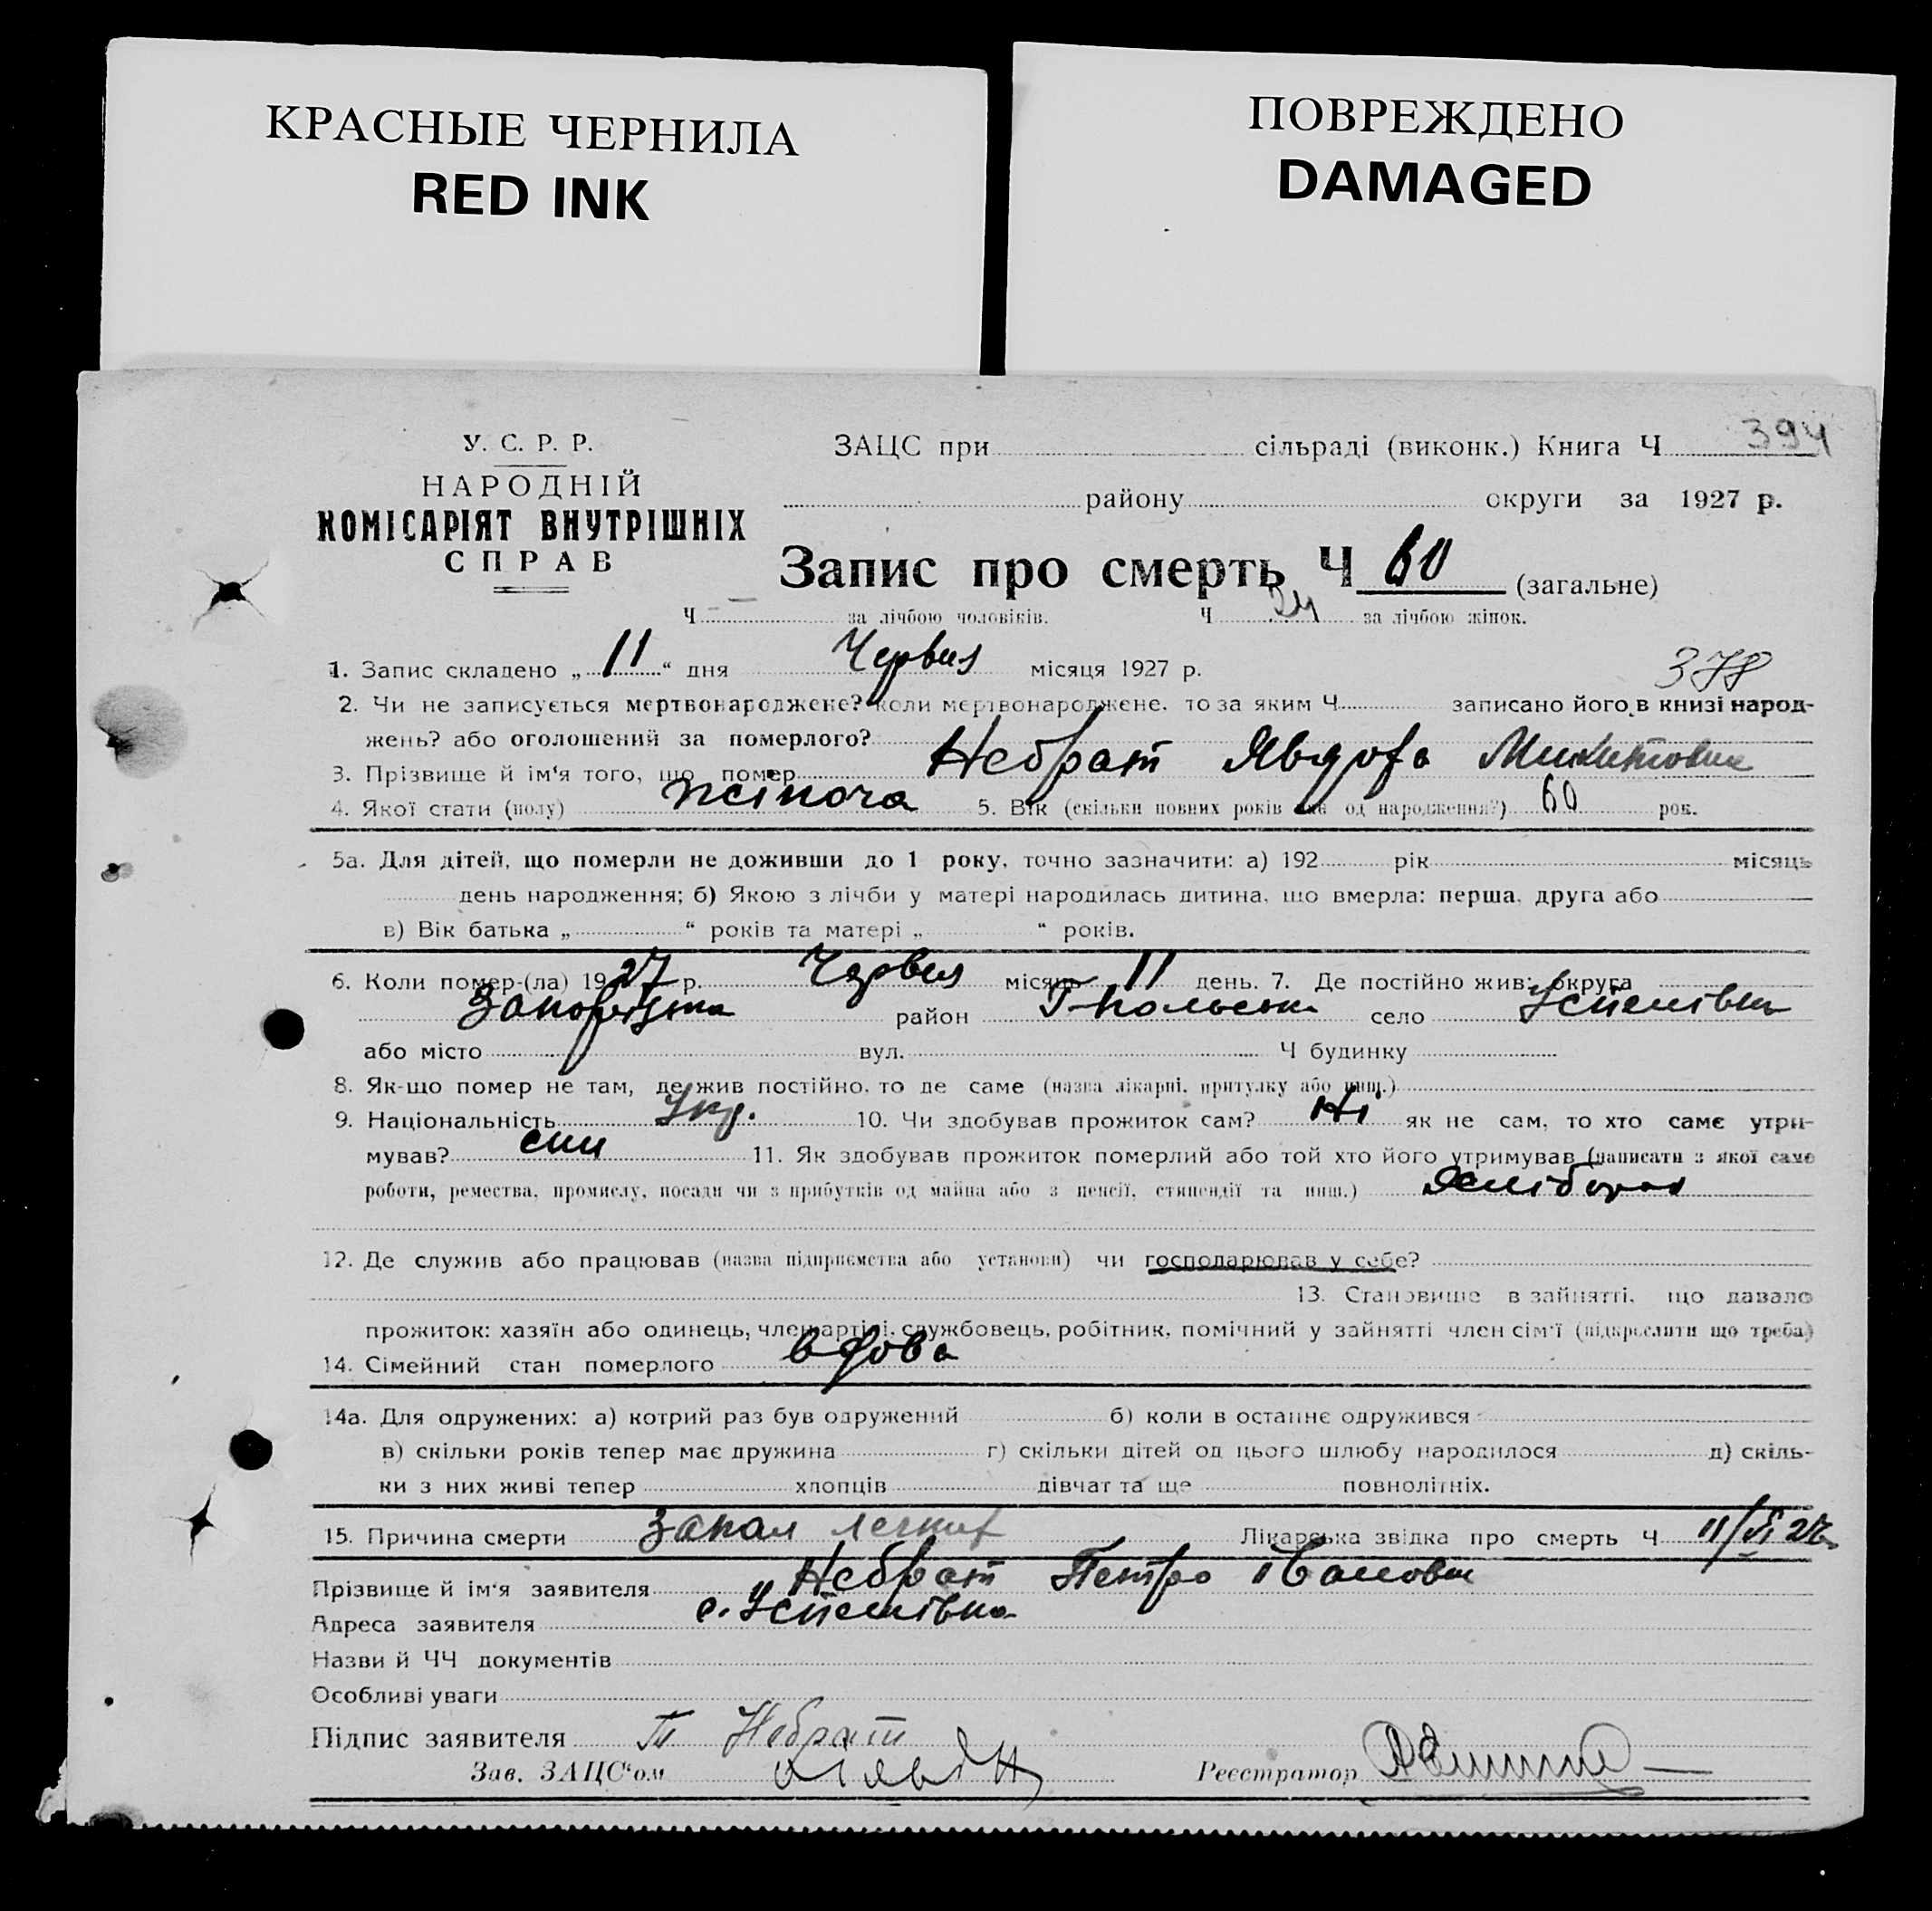 КРАСНЫЕ ЧЕРНИЛА
RED INK
ПОВРЕЖДЕНО
DAMAGED
У. С. Р. Р.
НАРОДНІЙ
КОМІСАРІЯТ ВНУТРІШНІХ
СПРАВ
ЗАЦС при сільраді (виконк.) Книга Ч 394
району округи за 1927 р.
Запис про смерть Ч 60 (загальне)
Ч — за лічбою чоловіків. Ч 24 за лічбою жінок.
1. Запис складено „ 11 “ дня Червня місяця 1927 р.
378
2. Чи не записується мертвонароджене? коли мертвонароджене, то за яким Ч записано його в книзі народ-
жень? або оголошений за померлого?
3. Прізвище й ім‘я того, що помер Небрат Явдоха Микитовна
4. Якої стати (полу) жіноча 5. Вік (скільки повних років од народження?) 60 рок.
5а. Для дітей, що померли не доживши до 1 року, точно зазначити: а) 192 рік місяць
день народження; б) Якою з лічби у матері народилась дитина, що вмерла: перша, друга або
в) Вік батька „ “ років та матері „ “ років.
6. Коли помер-(ла) 1927 р. Червня місяць 11 день. 7. Де постійно жив: округа
Запорізька район Г-Польськ село Успенівка
або місто вул. Ч будинку
8. Як-що помер не там, де жив постійно, то де саме (назва лікарні, притулку або инш.)
9. Національність Укр. 10. Чи здобував прожиток сам? Ні як не сам, то хто саме утри-
мував? син 11. Як здобував прожиток померлий або той хто його утримував (написати з якої саме
роботи, ремества, промислу, посади чи з прибутків од майна або з пенсії, стипендії та инш.) хлібороб
12. Де служив або працював (назва підприємства або установи) чи господарював у себе?
13. Становище в зайнятті, що давало
прожиток: хазяїн або одинець, член артілі, службовець, робітник, помічний у зайнятті член сім‘ї (підкреслити що треба)
14. Сімейний стан померлого вдова
14а. Для одружених: а) котрий раз був одружений б) коли в останнє одружився
в) скільки років тепер має дружина г) скільки дітей од цього шлюбу народилося д) скіль-
ки з них живі тепер хлопців дівчат та ще повнолітніх.
15. Причина смерти Запал легких Лікарська звідка про смерть Ч 11/VI 27
Прізвище й ім‘я заявителя Небрат Петро Іванович
Адреса заявителя с. Успенівка
Назви й ЧЧ документів
Особливі уваги
Підпис заявителя П Небрат
Зав. ЗАЦС‘ом
Реєстратор